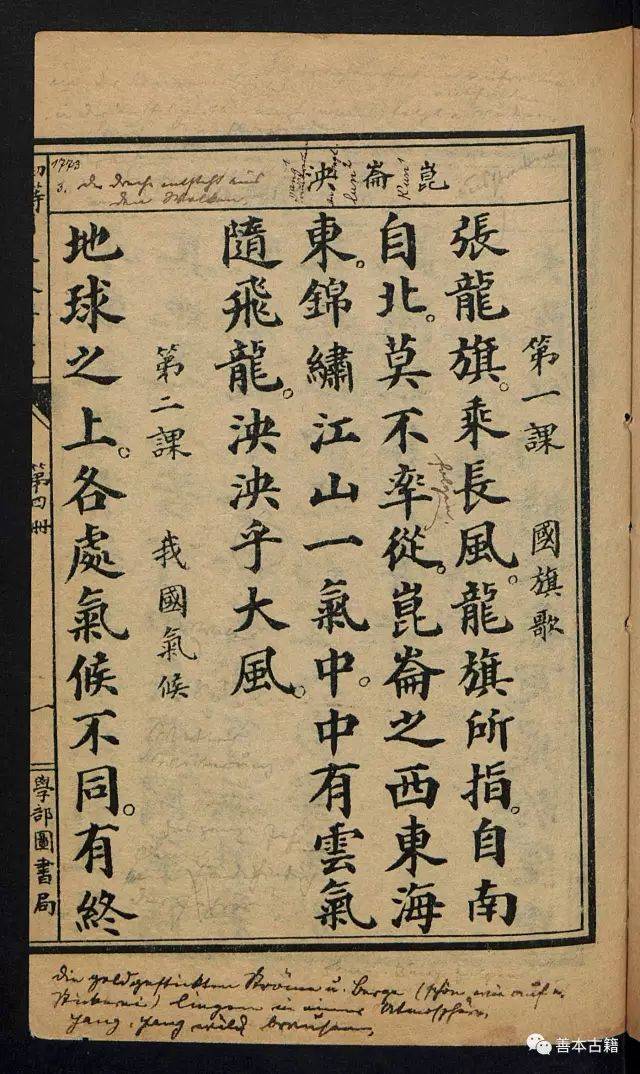 崑崙泱
第一課 國旗歌
張龍旗。乘長風。龍旗所指。自南
自北。莫不率從。崑崙之西東海
東。錦繡江山一氣中。中有雲氣
隨飛龍。泱泱乎大風。
第二課 我國氣候
地球之上。各處氣候不同。有終
第四冊
一
學部圖書局
kun¹
lun²
yang¹
1773
3. Der Drache entsteht aus
den Wolken
die goldgestickten Ströme u. Berge (schön wie auf e.
Stickerei) liegen in einer Atmosphäre,
yang, yang wild brausen
善本古籍